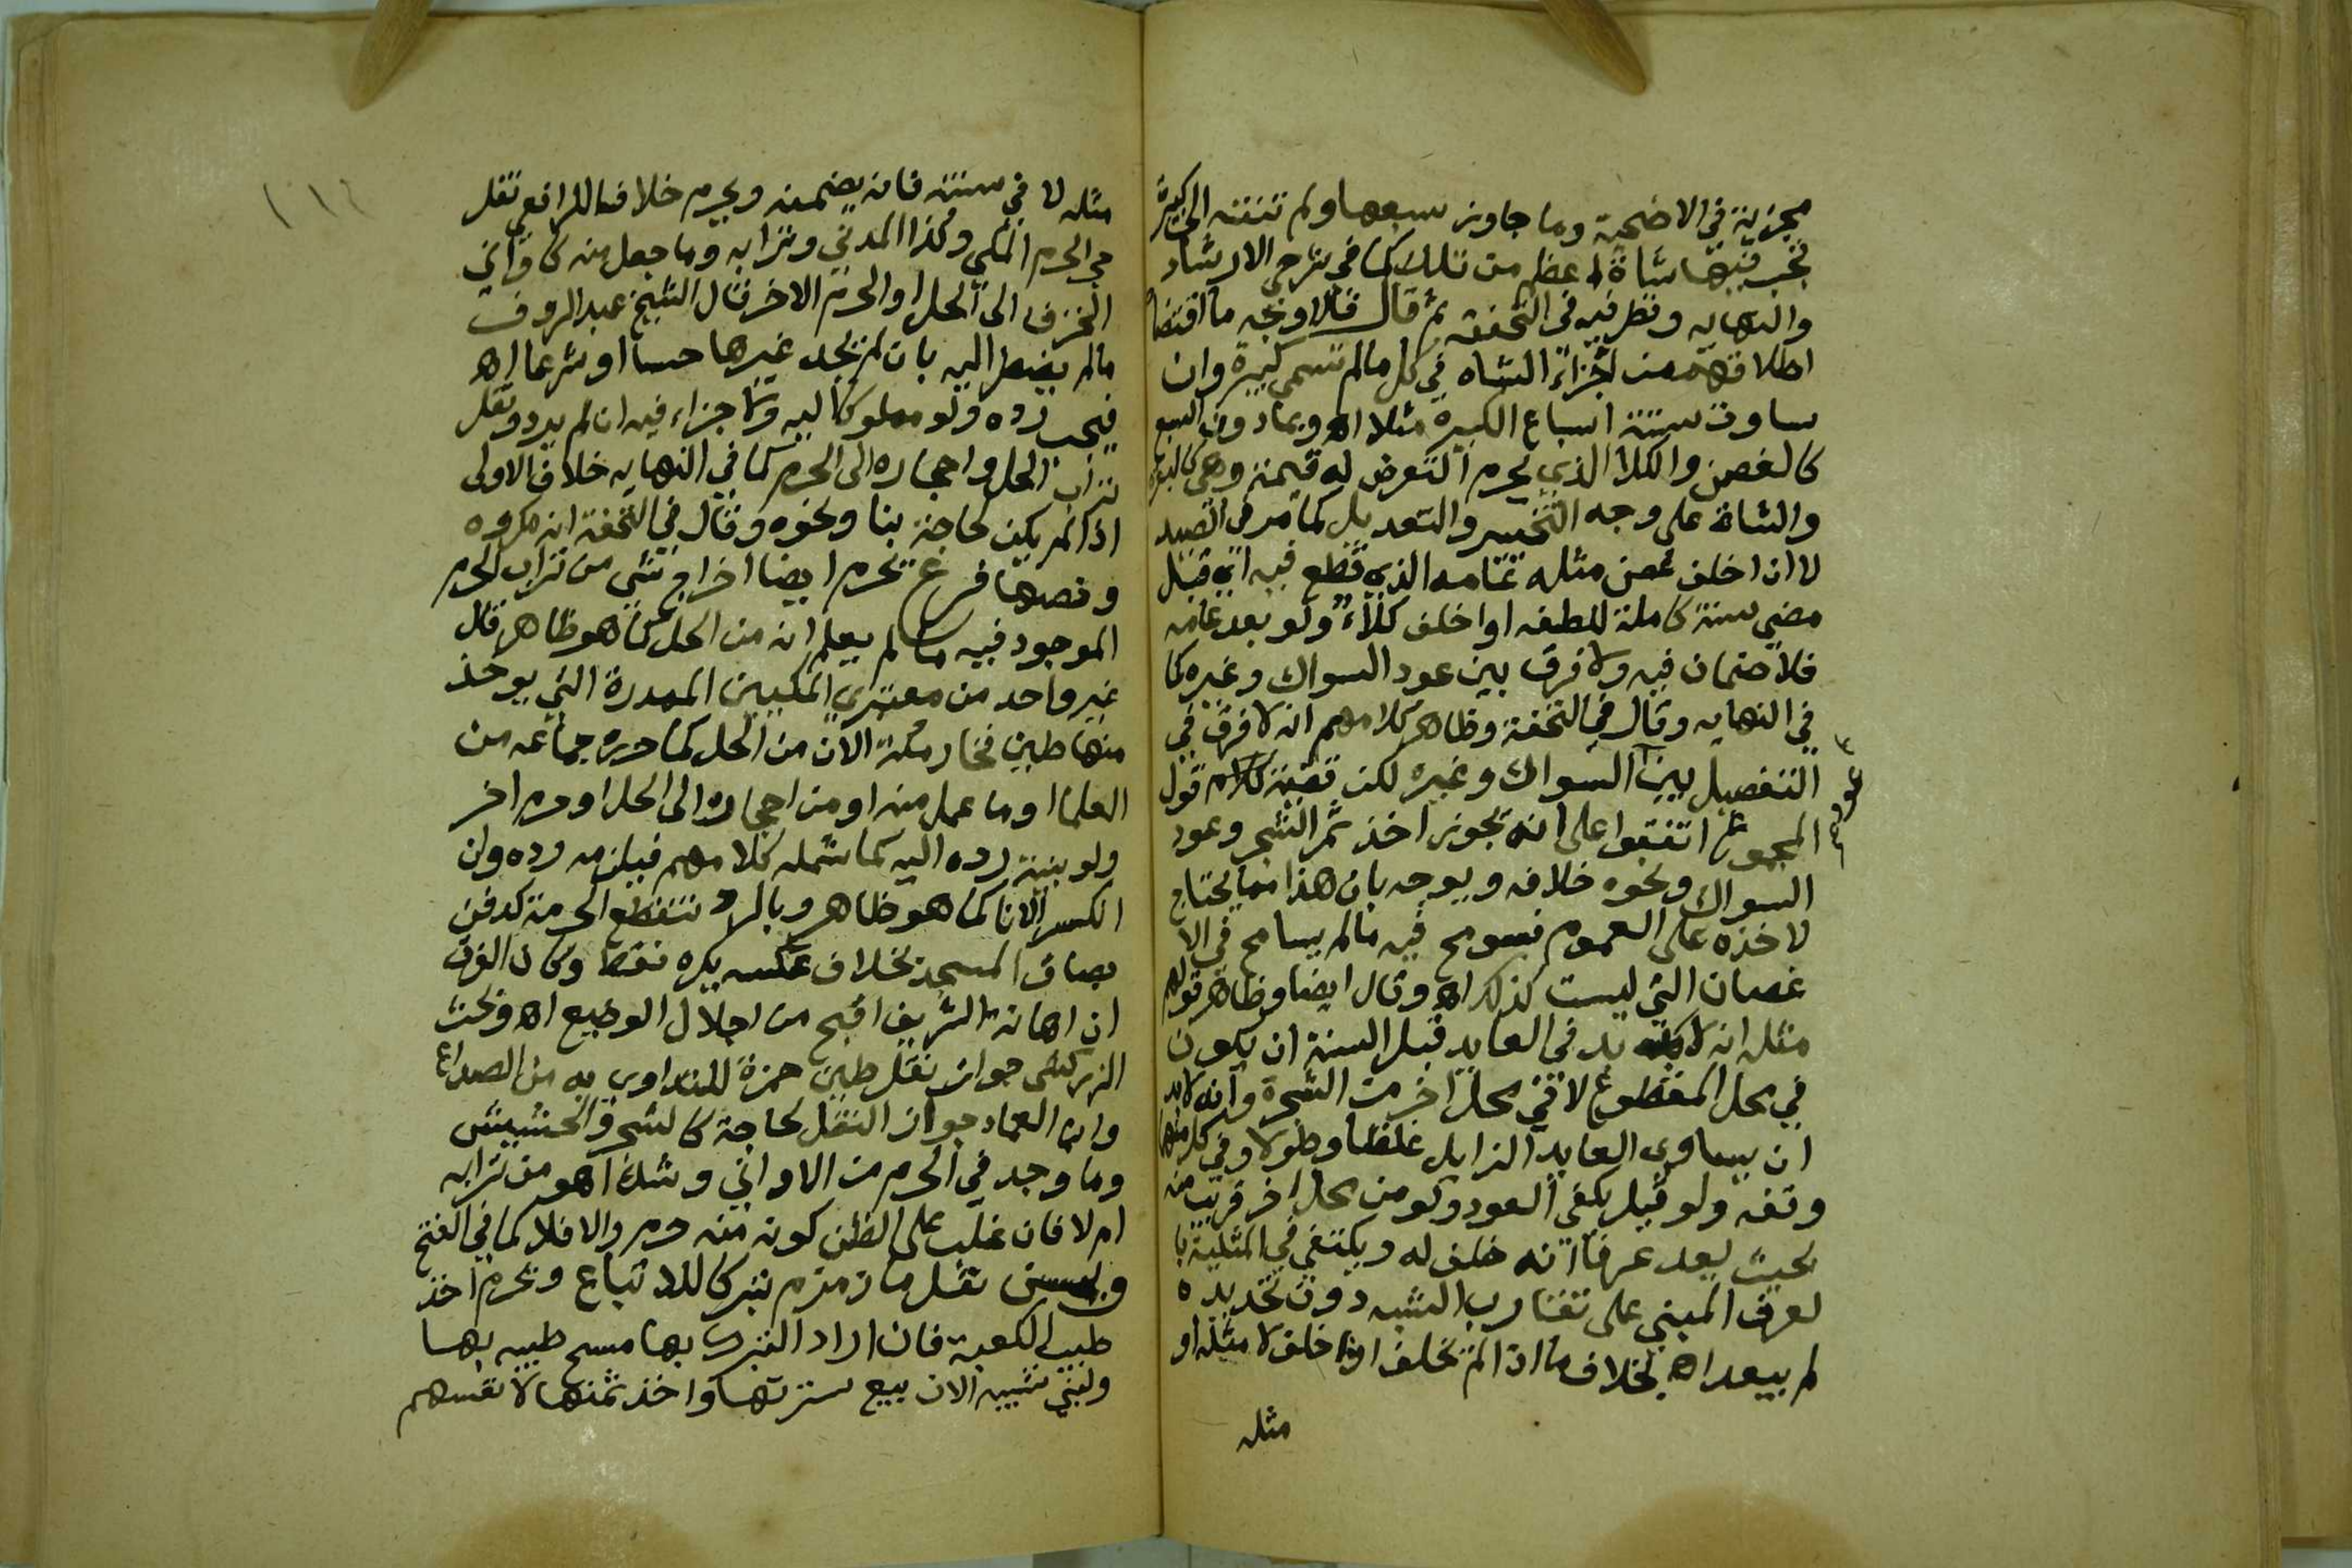 مجزية في الاضحية وما جاوز سبعها ولم تنته الى كبيرة
تجب فيها شاة اعظم من تلك كما في شرحي الارشاد
والنهايه ونظر فيه في التحفة ثم قال فالاوجه ما اقتضاه
اطلاقهم من اجزاء الشاه في كل ما لم تسمى كبيرة وان
ساوت ستة اسباع الكبيره مثلا اه وبما دون السبع
كالغصن والكلا الذي يحرم التعرض له قيمته وهي كالبقرة
والشاة على وجه التخيير والتعديل كما مر في الصيد
لا ان اخلف غصن مثله عامه الذي قطع فيه اي قبل
مضي سنة كاملة للطفه او اخلف كلاء ولو بعد عامه
فلا ضمان فيه ولا فرق بين عود السواك وغيره كما
في النهايه وقال في التحفة وظاهر كلامهم انه لا فرق في
التفصيل بين السواك وغيره لكن قضية كلام قول
المجموع اتفقوا على انه يجوز اخذ ثمر الشجر وعود
السواك ونحوه خلافه ويوجه بان هذا مما يحتاج
لاخذه على العموم فسومح فيه ما لم يسامح في الا
غصان التي ليست كذلك اه وقال ايضا وظاهر قولهم
مثله انه لا بد في العايد قبل السنة ان يكون
في محل المقطوع لا في محل اخر من الشجرة وانه لا بد
ان يساوي العايد الزايل غلظا وطولا وفي كل منهما
وقفه ولو قيل يكفي العود ولو من محل اخر قريب منه
بحيث يعد عرفا انه خلف له ويكتفي في المثلية با
لعرف المبني على تقارب الشبه دون تحديده
لم يبعد اه بخلاف ما اذا لم تخلف او اخلف لا مثله او
مثله
مثله لا في سنته فانه يضمنه ويحرم خلافا للرافعي نقل
حجر الحرم المكي وكذا المدني وترابه وما جعل منه كاواني
الخزف الى الحل او الحرم الاخر قال الشيخ عبد الروف
ما لم يضطر اليه بان لم يجد غيرها حسا او شرعا اه
فيجب رده ولو مملوكا اليه ولا جزاء فيه ان لم يرد ونقل
تراب الحل واحجاره الى الحرم كما في النهايه خلاف الاولى
اذا لم يكن لحاجة بنا ونحوه وقال في التحفة انه مكروه
ونصها فرع يحرم ايضا اخراج شي من تراب الحرم
الموجود فيه ما لم يعلم انه من الحل كما هو ظاهر قال
غير واحد من معتبري المكيين الممدرة التي يوخذ
منها طين فخار مكة الان من الحل كما حرره جماعه من
العلما او ما عمل منه او من احجاره الى الحل او حرم اخر
ولو بنية رده اليه كما شمله كلامهم فيلزمه رده وان
انكسر الانا كما هو ظاهر وبالرد تنقطع الحرمة كدفن
بصاق المسجد بخلاف عكسه يكره فقط وكان الفرق
ان اهانة الشريف اقبح من اجلال الوضيع اه وبحث
الزركشي جواز نقل طين حمزة للتداوي به من الصداع
وابن العماد جواز النقل لحاجة كالشجر والحشيش
وما وجد في الحرم من الاواني وشك اهو من ترابه
ام لا فان غلب على الظن كونه منه حرم والا فلا كما في الفتح
ويسن نقل ما زمزم تبركا للاتباع ويحرم اخذ
طيب الكعبة فان اراد التبرك بها مسح طيبه بها
ولبني شيبه الان بيع سترتها واخذ ثمنها لانفسهم